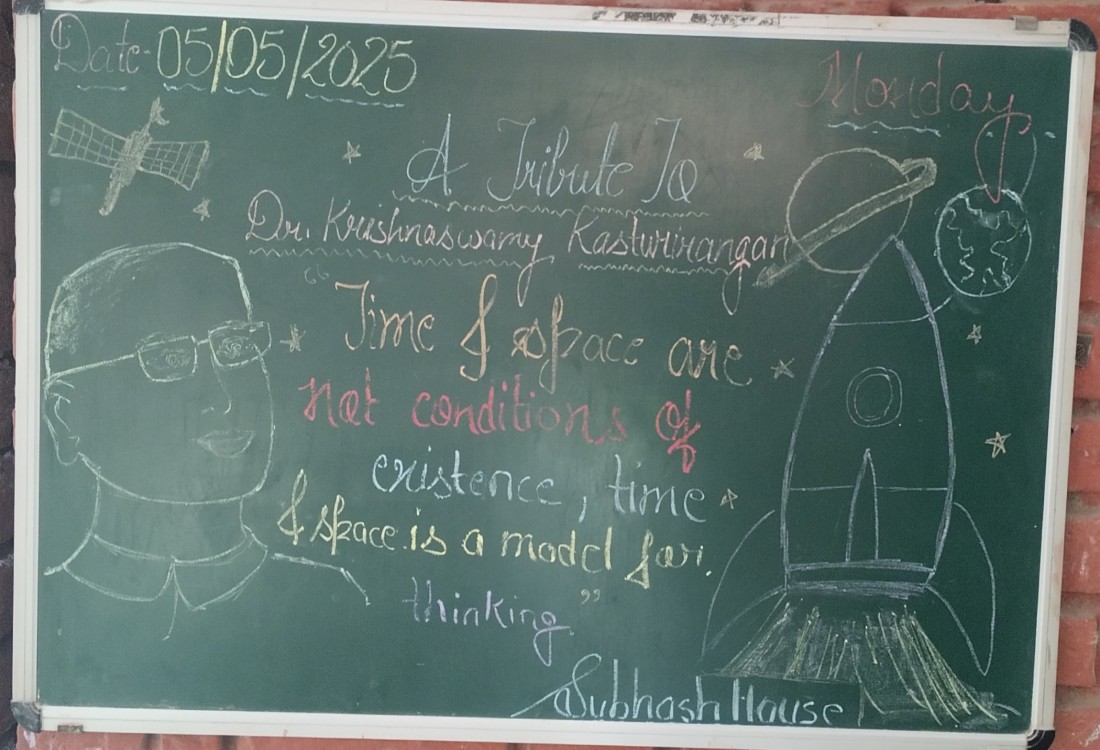 Date- 05/05/2025
Monday
A Tribute To
Dr. Krishnaswamy Kasturirangan
"Time & space are
not conditions of
existence, time
& space is a model for
thinking"
Subhash House